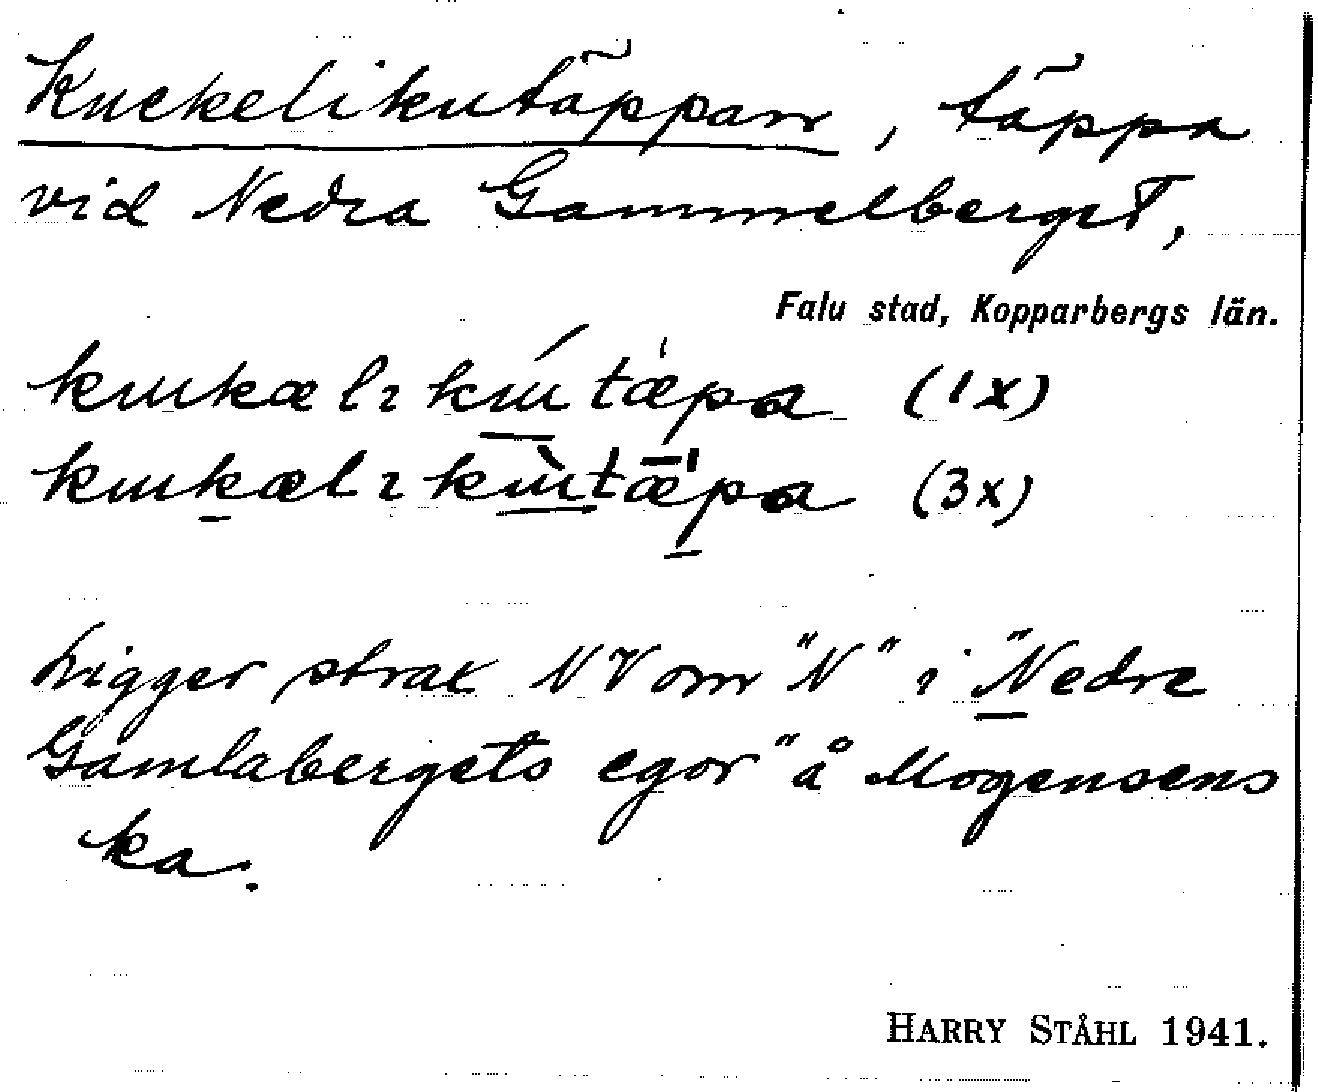 Kuckelikutäppan, täppa
vid Nedra Gammelberget,
Falu stad, Kopparbergs län.
(1x)
(3x)
Ligger strax NV om "N" i "Nedre
Gamlabergets egor" å Mogensens
ka.
HARRY STÅHL 1941.